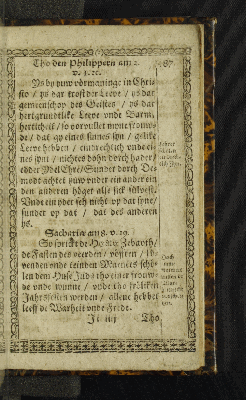 Tho den Philippern am 2. 87
v. 1. ꝛc.
Ys by yuw vörmaninge in Chris-
sto / ys dar trost der Leve / ys dar
gemeenschop des Geistes / ys dar
hertgrundtlike Leve unde Barm-
herticheit / so vorvullet myne frouw-
de / dat gy eines sinnes syn / gelike
Leeve hebben / eindrechtich unde ei-
nes syn / nichtes dohn dorch hader /
edder Ehre / Sunder dorch De-
modt achtet yuw under ein ander ein
den anderen höger alse sick sülvest.
Unde ein yder seh nicht up dat syne /
sunder up dat / dat des anderen
ys.
Sacharia am 8. v. 19.
So sprickt de Zebaoth /
de Fasten des veerden / vefften / sö-
venden unde teinden Maentes schö-
len dem Huse Juda tho einer frouw-
de unde wunne / unde tho fröliken
Jahrfesten werden / allene hebbet
leeff de Warheit unde Frede.
Tho